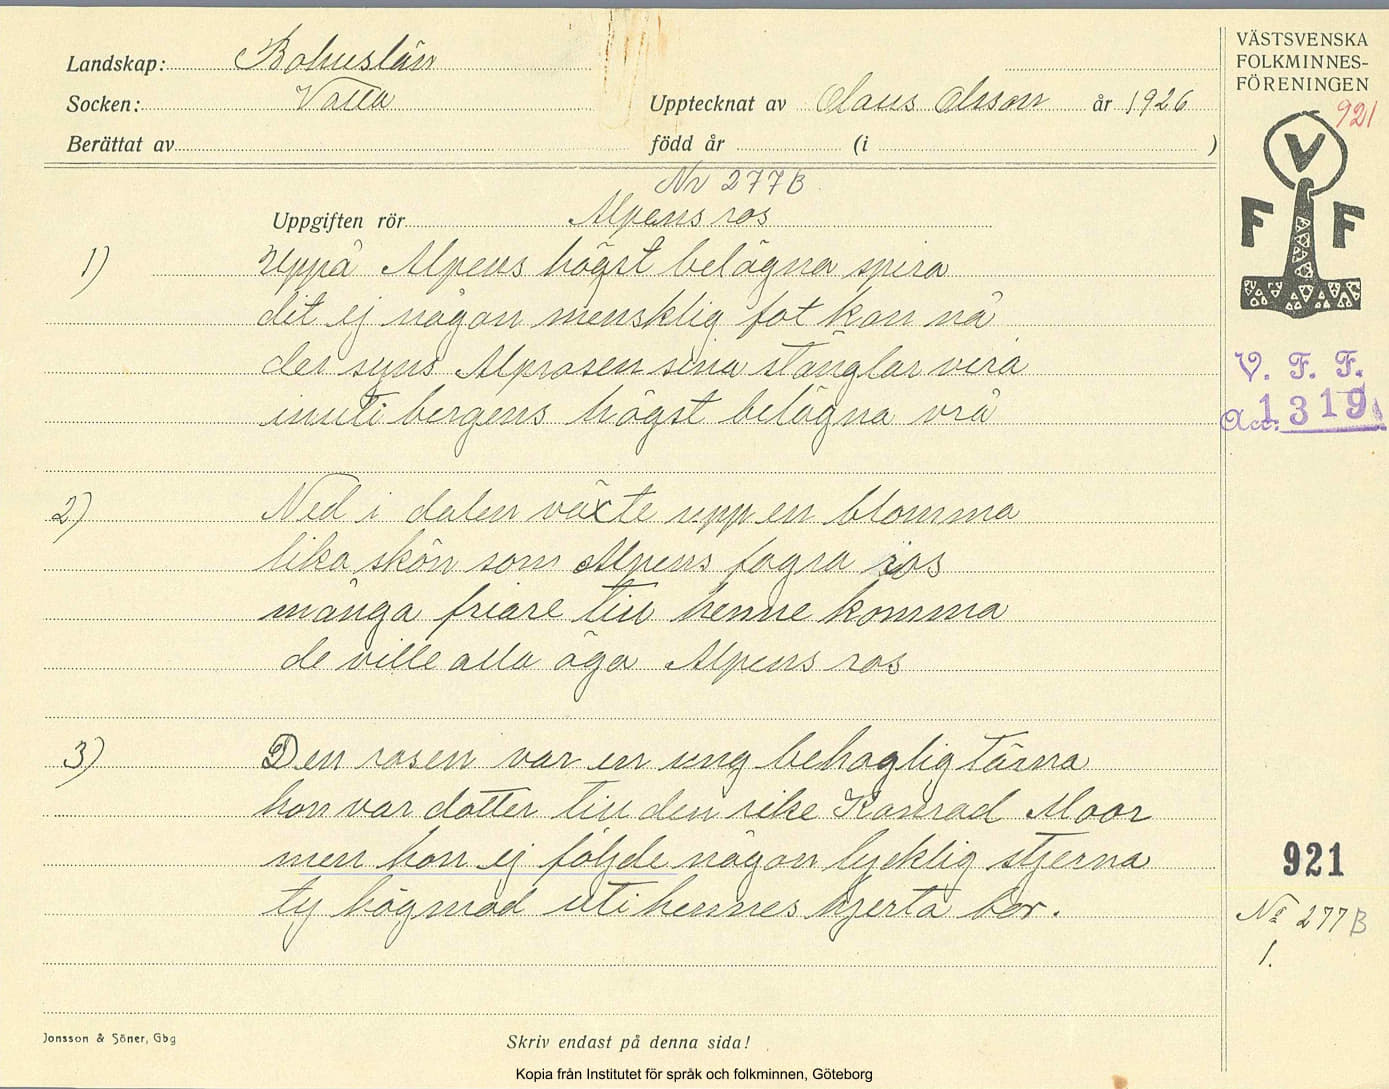 Landskap: Bohuslän
Socken: Valla
Upptecknat av Olaus Olsson år 1926
Berättat av
född år (i )
VÄSTSVENSKA
FOLKMINNES-
FÖRENINGEN
921
V
F F
V. F. F.
Acc. 1319
Nr 277B
Uppgiften rör Alpens ros
1) Uppå Alpens högst belägna spira
dit ej någon mensklig fot kan nå
der syns Alprosen sina stänglar vira
inuti bergens högst belägna vrå
2) Ned i dalen växte upp en blomma
lika skön som Alpens fagra ros
många friare till henne komma
de ville alla äga Alpens ros
3) Den rosen var en ung behaglig tärna
hon var dotter till den rike Konrad Moor
men hon ej följde någon lycklig stjerna
ty högmod uti hennes hjerta bor.
921
No 277B
1.
Jonsson & Söner, Gbg
Skriv endast på denna sida!
Kopia från Institutet för språk och folkminnen, Göteborg